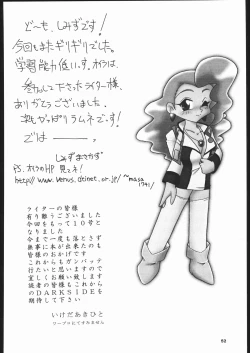 ど〜も、しみずです!
今回もまたギリギリでした。
学習能力低いっす、オイラは、
参加して下さったライター様、
ありがとうございました。
次もがっぱりラムネです!
では ―――。
しみずまさかず
P.S. オイラのHP 見てネ!
http://www.venus.dtinet.or.jp/~masa
1791/
ライターの皆様
有り難うございました
今回をもって10号と
なりました
今まで一度も落とさず
無事に本が出来たのも
皆様のおかげです
これからもガンバッテ
行たいと思いますので
宜しくお願い致します
読者の皆様もこれから
のDARKSIDEを
期待して下さい
いけだあきひと
ワープロにてすみません
93